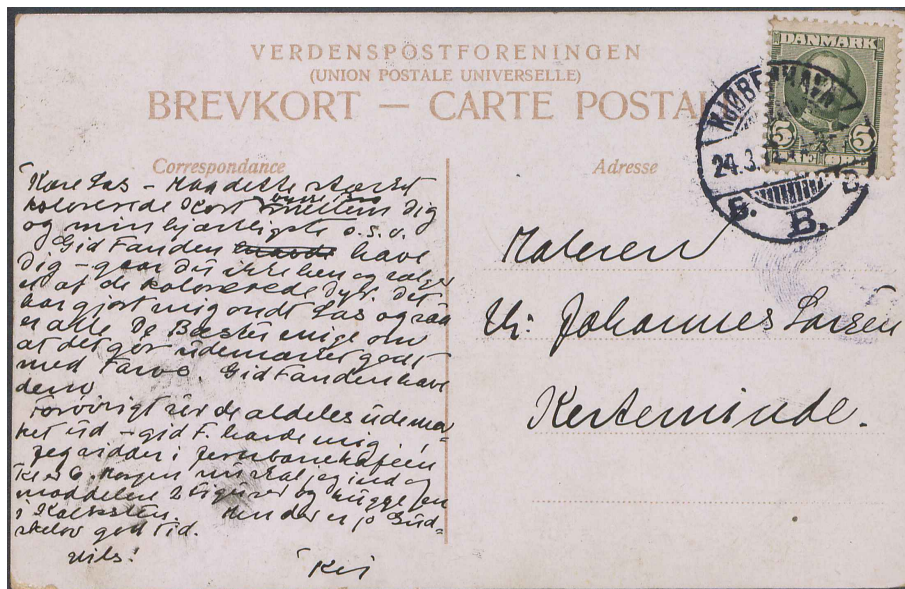 VERDENSPOSTFORENINGEN
(UNION POSTALE UNIVERSELLE)
BREVKORT — CARTE POSTALE
DANMARK
5 5
ØRE
KJØBENHAVN
24.3.
B.
Correspondance
Adresse
Kære Las – Maa dette stærkt
kolorerede Kort mellem Dig
og min hjærteligste o.s.v.
Gid Fanden have
Dig – gaar Du ikke hen og vælger
et af de kolorerede Dyr. Det
har gjort mig ondt Las og saa
er alle De Bæster enige om
at det gør udemærket godt
med Farve. Gid Fanden have
dem
Forøvrigt ser de aldeles udemær-
ket ud – gid F. havde mig,
jeg sidder i Jernbanekafeen
Kl 6. Morgen nu skal jeg ind og
moddelere 2 Figurer og hugge en
i Kalksten. Men der er jo Gud-
skelov god Tid.
Hils!
Maleren
Hr: Johannes Larsen
Kerteminde.